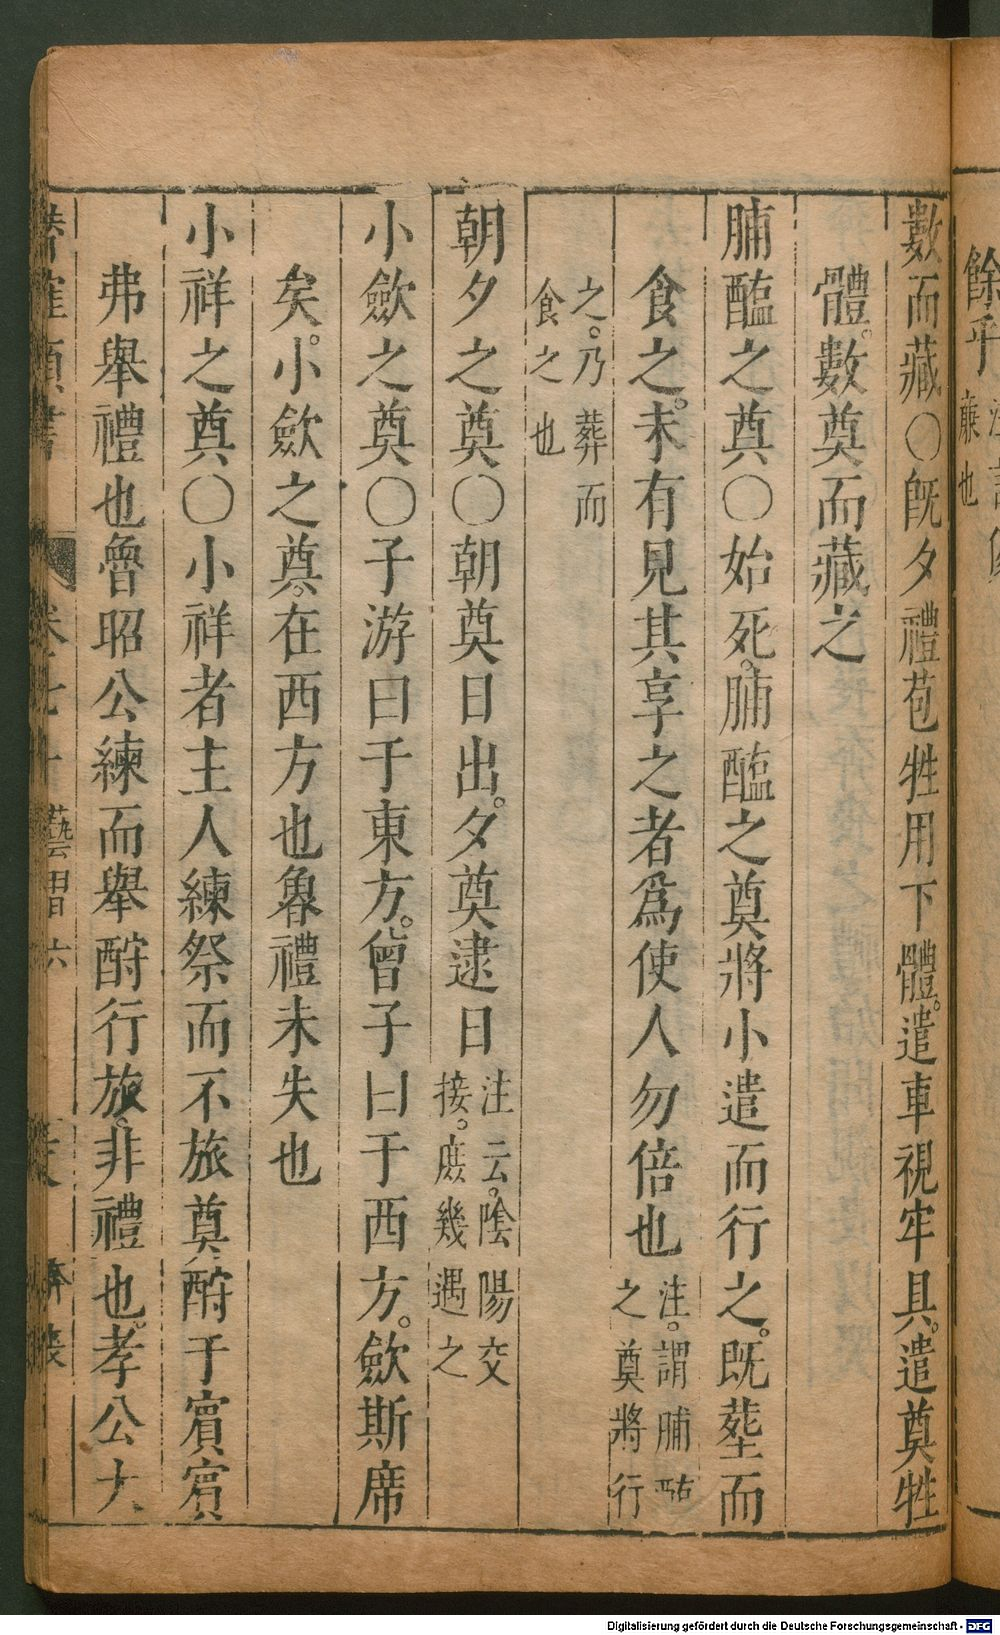 餘乎
廉也
數而藏〇旣夕禮苞牲用下體。遣車視牢具。遣奠牲
體。數奠而藏之
脯醢之奠〇始死。脯醢之奠將小遣而行之。既塟而
食之。未有見其享之者爲使人勿倍也注。謂脯醢之奠將行
之。乃葬而食之也
朝夕之奠〇朝奠日出。夕奠逮日注云。陰陽交接。庻幾遇之
小歛之奠〇子游曰于東方。曾子曰于西方。歛斯席
矣。小歛之奠。在西方也魯禮未失也
小祥之奠〇小祥者主人練祭而不旅奠酧于賓賓
弗舉禮也魯昭公練而舉酧行旅。非禮也。孝公大
卷七十 藝習六
Digitalisierung gefördert durch die Deutsche Forschungsgemeinschaft - DFG